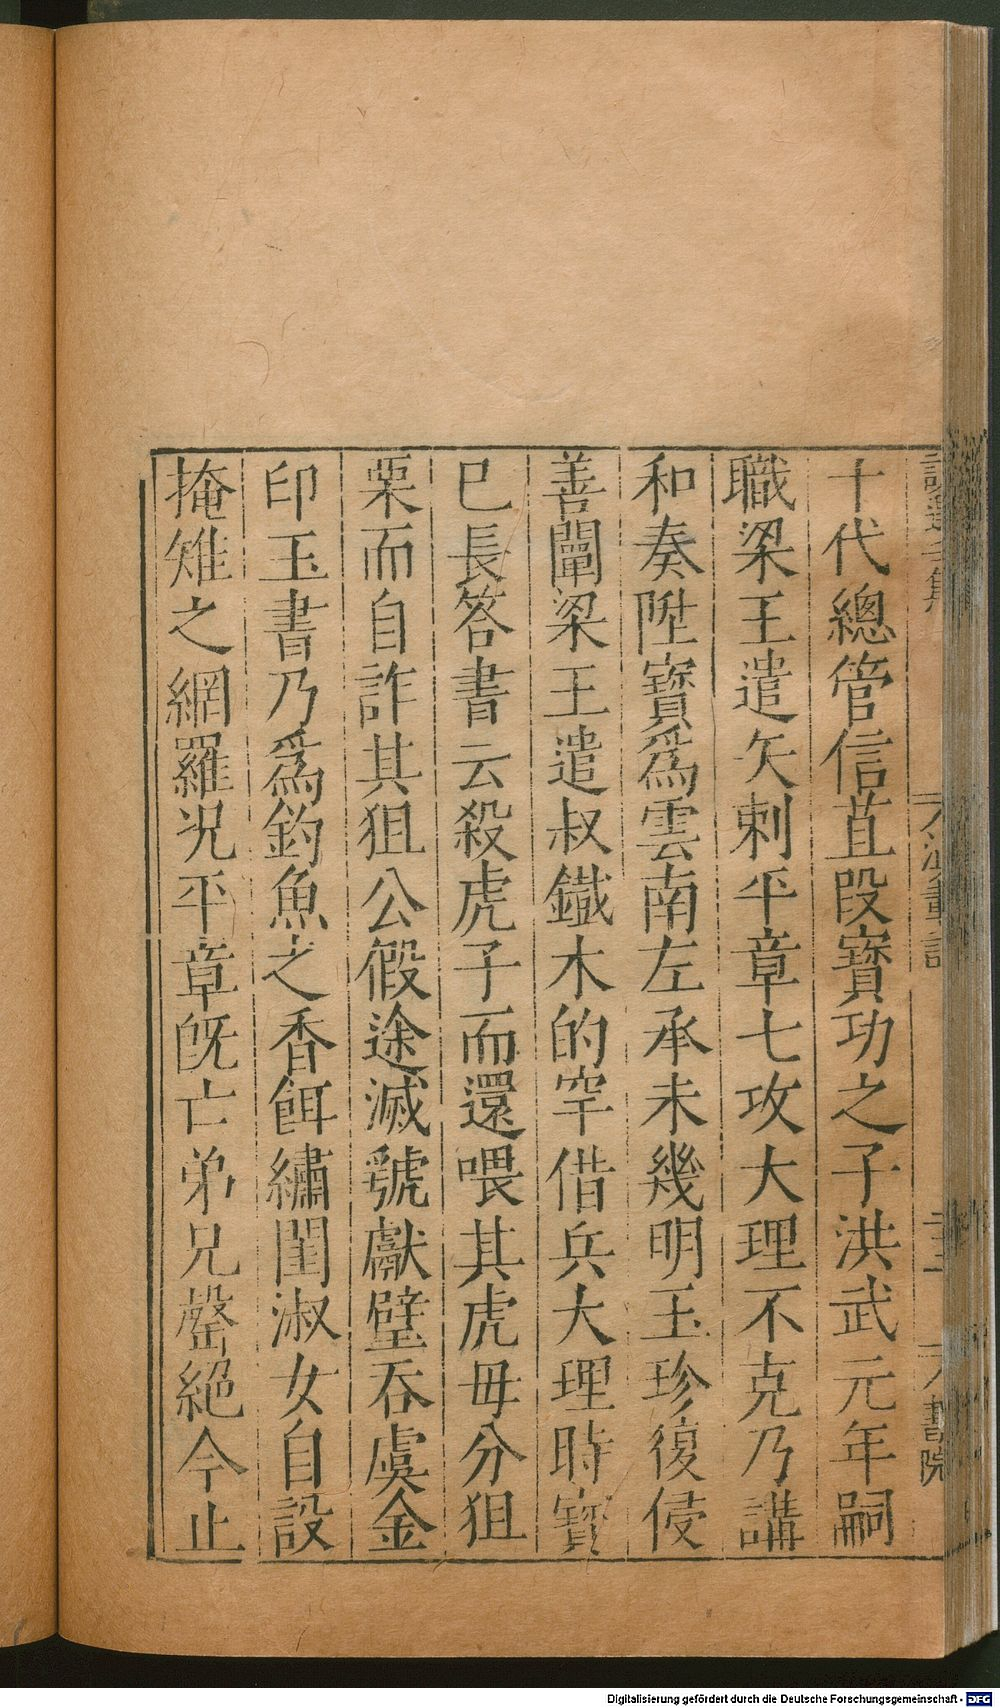 十代總管信苴段寳功之子洪武元年嗣
職梁王遣矢剌平章七攻大理不克乃講
和奏陞寳爲雲南左承未幾明玉珍復侵
善闡梁王遣叔鐵木的罕借兵大理時寳
已長答書云殺虎子而還喂其虎母分狙
栗而自詐其狙公假途滅虢獻璧吞虞金
印玉書乃爲釣魚之香餌繡閨淑女自設
掩雉之網羅况平章旣亡弟兄罄絕今止
書院
Digitalisierung gefördert durch die Deutsche Forschungsgemeinschaft - DFG